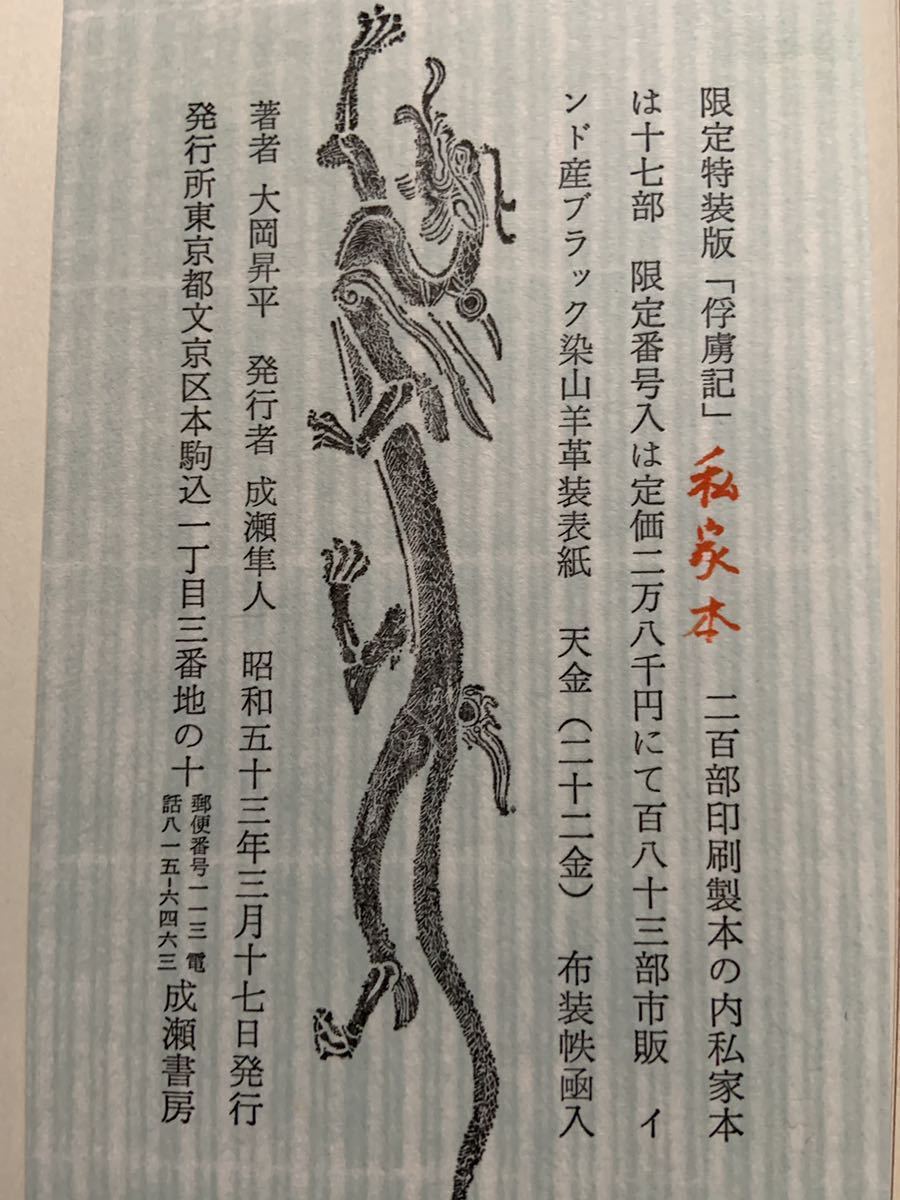 限定特装版「俘虜記」 私家本 二百部印刷製本の内私家本
は十七部 限定番号入は定価二万八千円にて百八十三部市販 イ
ンド産ブラック染山羊革装表紙 天金(二十二金) 布装帙函入
著者 大岡昇平 発行者 成瀬隼人 昭和五十三年三月十七日発行
発行所東京都文京区本駒込一丁目三番地の十 郵便番号一一三 電話八一五-六四六三 成瀬書房